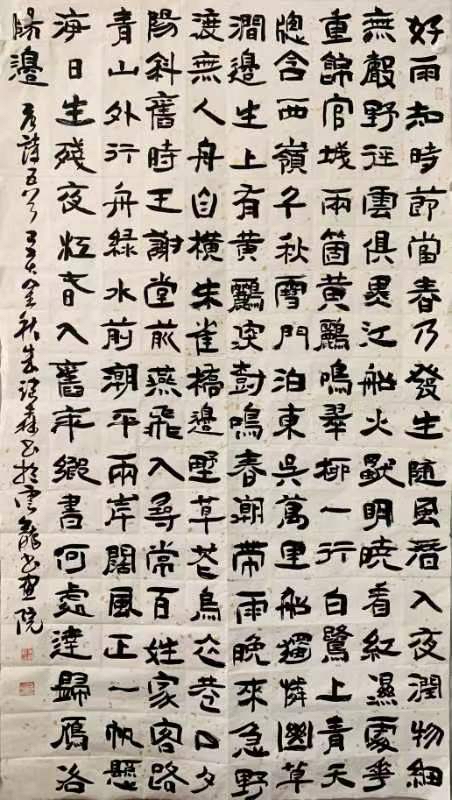 好雨知時節當春乃發生隨風潛入夜潤物細
無聲野徑雲俱黑江船火獨明曉看紅濕處花
重錦官城兩箇黃鸝鳴翠柳一行白鷺上青天
窗含西嶺千秋雪門泊東吳萬里船獨憐幽草
澗邊生上有黃鸝深樹鳴春潮帶雨晚來急野
渡無人舟自橫朱雀橋邊野草花烏衣巷口夕
陽斜舊時王謝堂前燕飛入尋常百姓家客路
青山外行舟綠水前潮平兩岸闊風正一帆懸
海日生殘夜江春入舊年鄉書何處達歸雁洛
陽邊
唐詩五首 金秋朱森書於雲龍書畫院